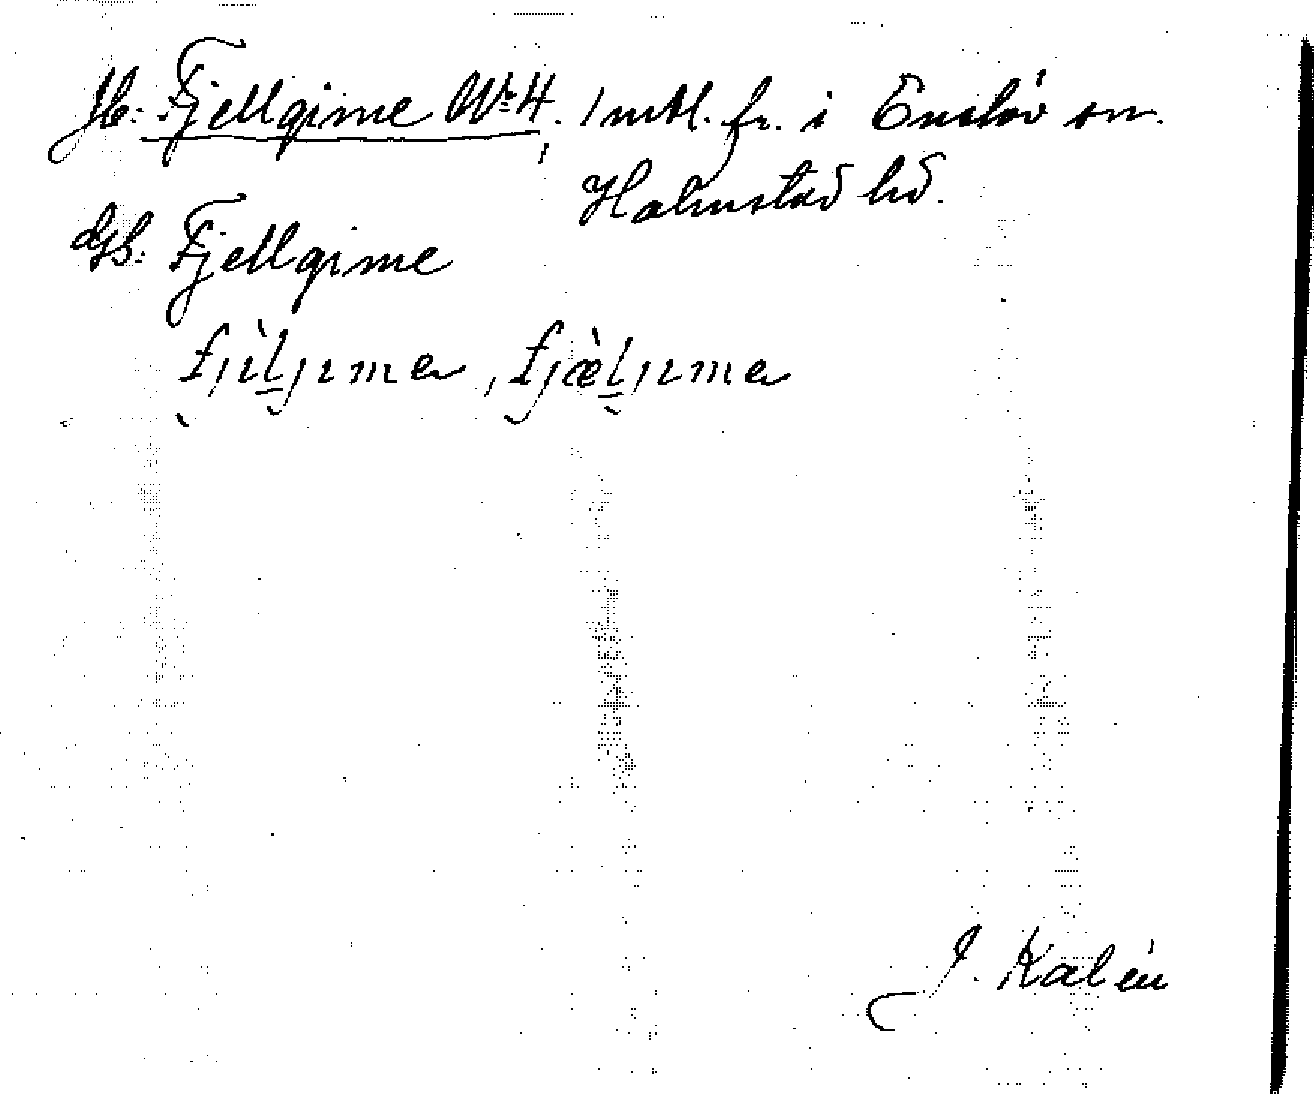 Jb: Fjellgime Nr 4. 1 mtl. fr. i Enslöv sn.
Halmstad hd.
GS: Fjellgime
fjìljɪmə, fjæ̀ljɪmə
J. Kalén